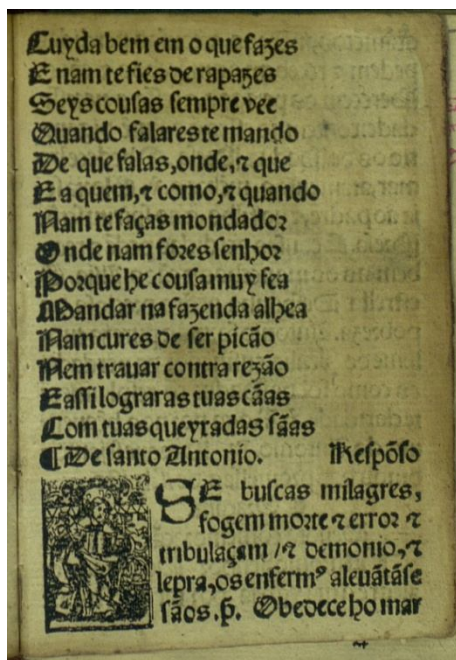 Cuyda bem em o que fazes
E nam te fies de rapazes
Seys cousas sempre vee
Quando falares te mando
De que falas, onde, ⁊ que
E a quem, ⁊ como, ⁊ quando
Nam te faças mondador
Onde nam fores senhor
Porque he cousa muy fea
Mandar na fazenda alhea
Nam cures de ser picão
Nem trauar contra rezão
E assi lograras tuas cãas
Com tuas queyradas sãas
¶ De santo Antonio. Respõso
SE buscas milagres,
fogem morte ⁊ error ⁊
tribulaçam /⁊ demonio, ⁊
lepra, os enfermꝰ aleuãtãse
sãos. p̃. Obedece ho mar